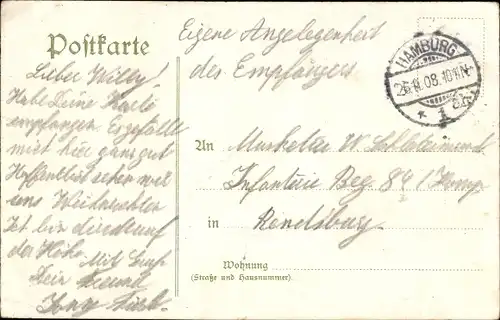 Postkarte
Eigene Angelegenheit
des Empfängers
HAMBURG
25.11.08.10-11N
* 1
Lieber Willy!
Habe Deine Karte
empfangen. Es gefällt
mir hier ganz gut
Hoffentlich sehen wir
uns Weihnachten
bis du
der Höhe. Mit Gruß
Dein Freund
An Musketier W.
Infanterie Reg. 84 1 Komp
in Rendsburg
Wohnung
(Straße und Hausnummer).